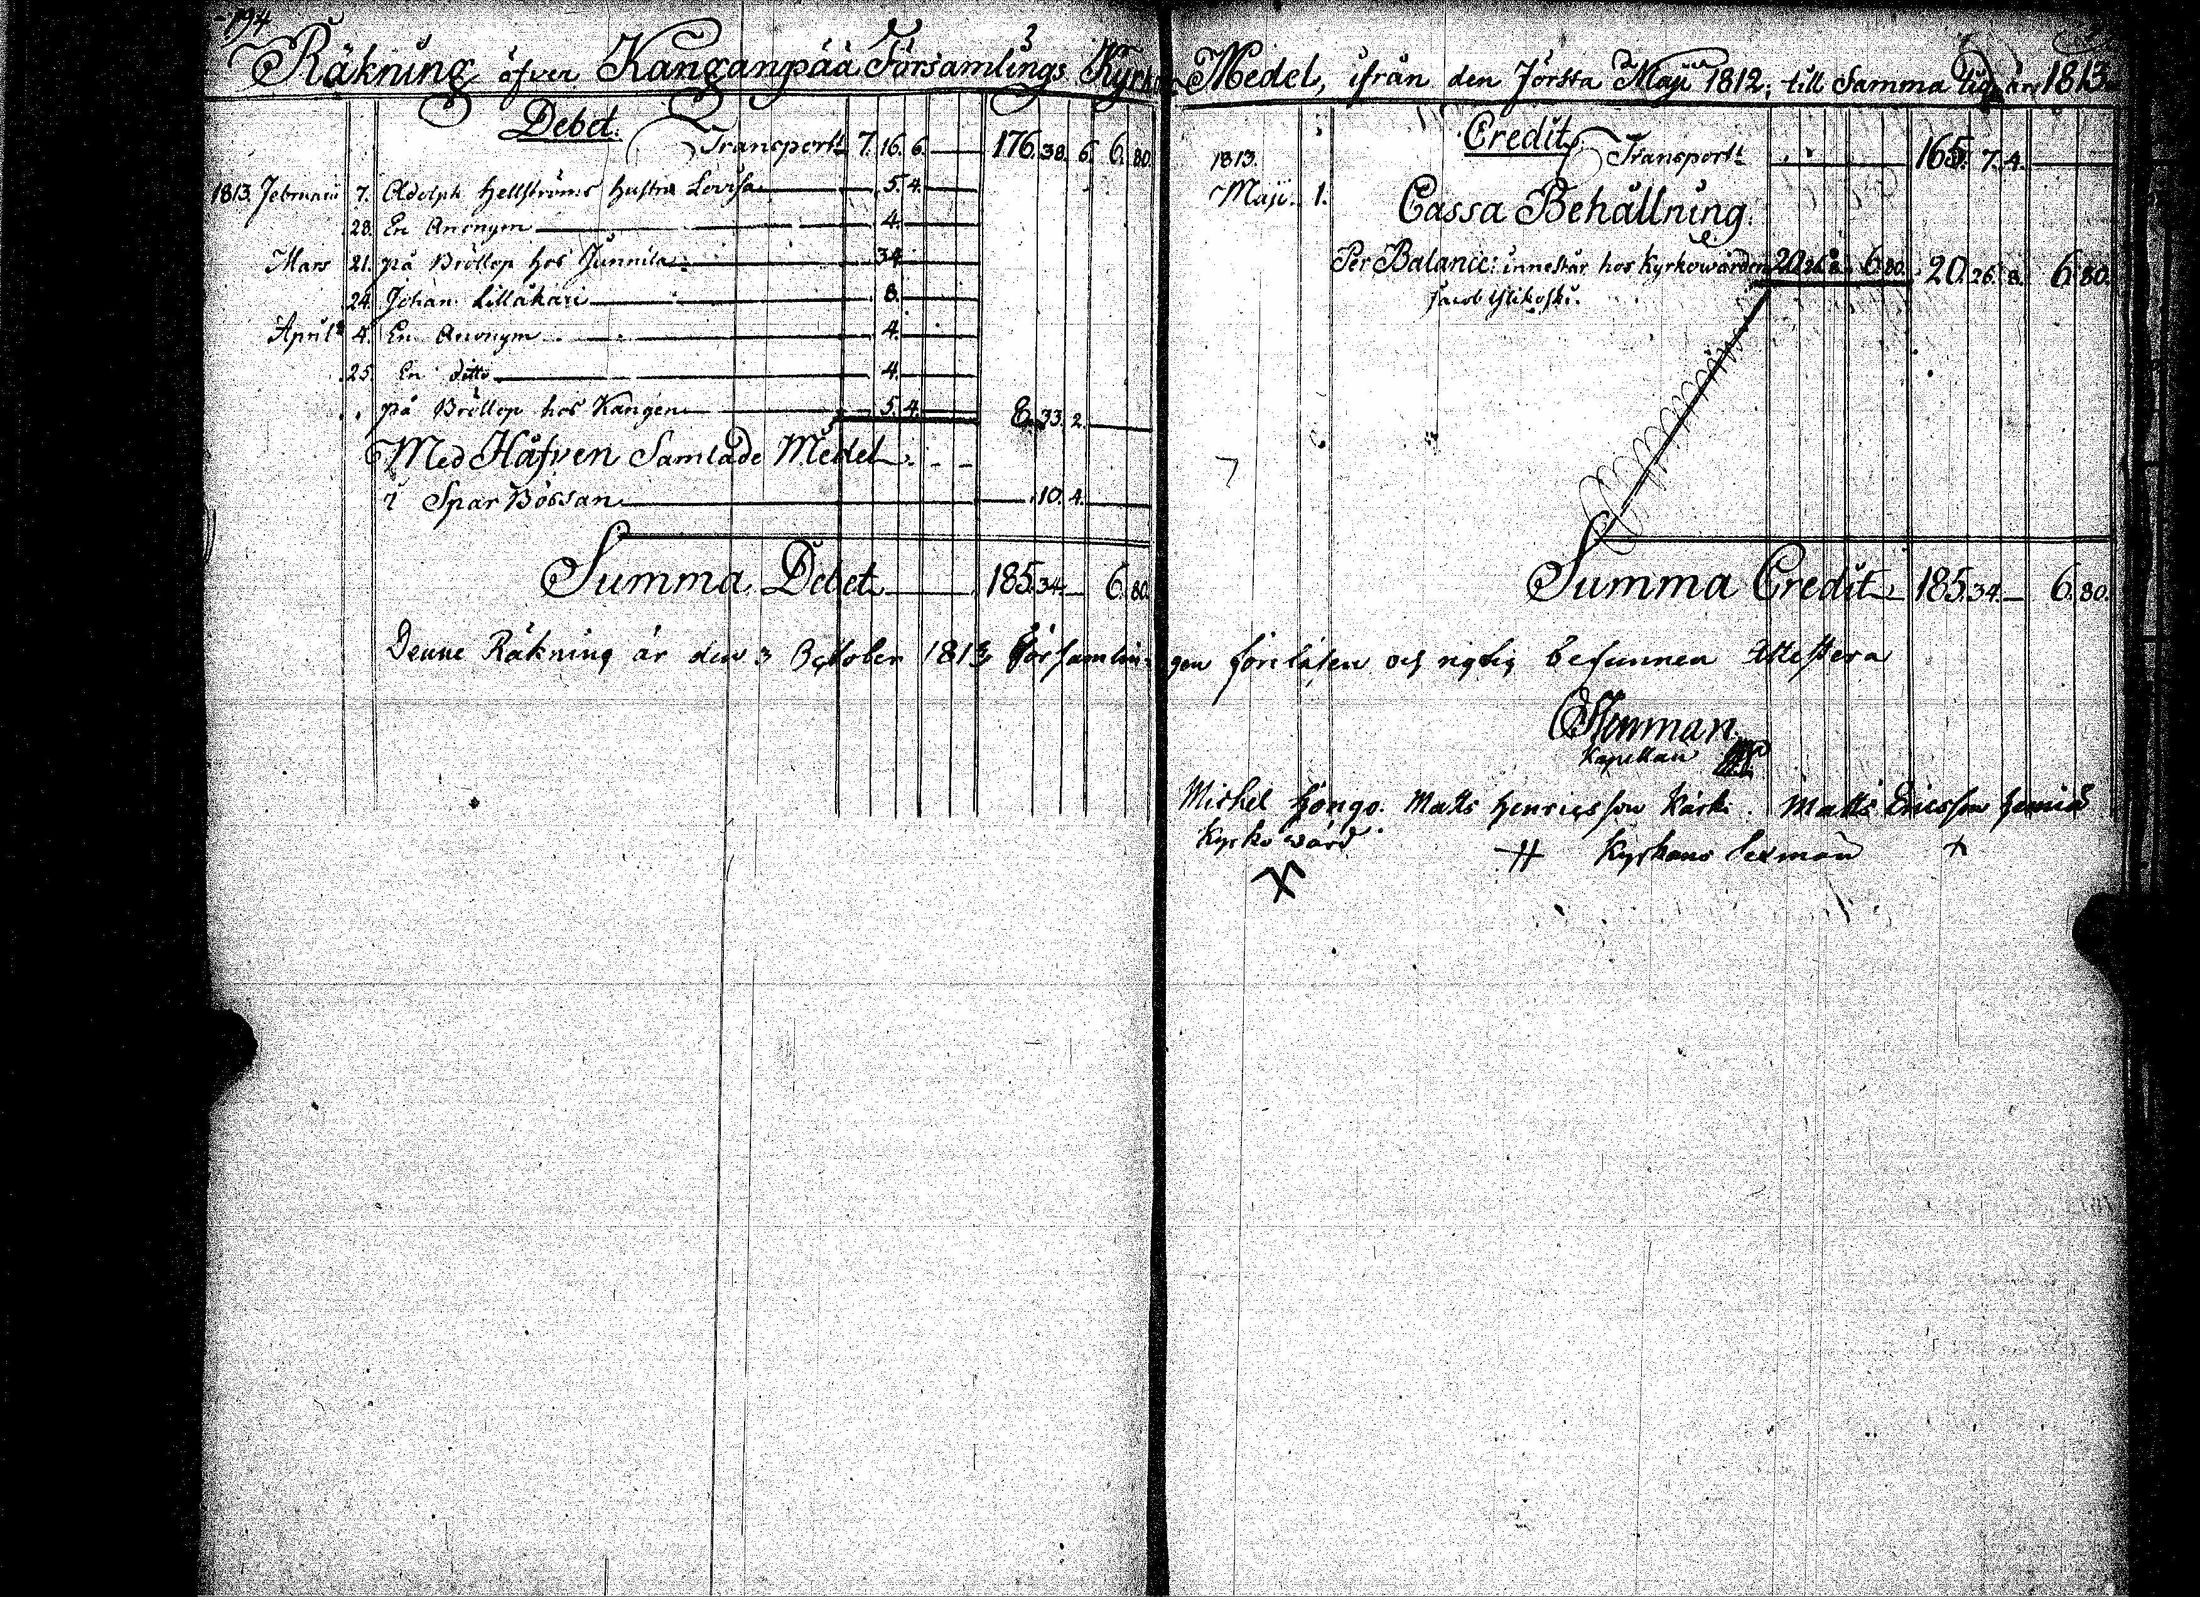 194
Räkning öfver Kanganpää Församlings Kyrko
Debet.
Transport 7. 16. 6. 176. 38. 6. 6. 80.
1813. Februarii 7. Adolph Hellströms hustru Lovisa 5. 4.
28. En Anonym 4.
Mars 21. på Bröllop hos Junnila 34.
24. Johan Lillakari 8.
April 4. En Anonym 4.
25. En ditto 4.
på Bröllop hos Kangen 5. 4. 8. 33. 2.
Med Håfven Samlade Medel
i Spar Bössan 10. 4.
Summa Debet 185. 34. 6. 80.
Denne Räkning är den 3 October 1813 för Samlin-
Medel, ifrån den Första Maji 1812, till Samma tid år 1813.
Credit
1813. Transport 165. 7. 4.
Maji. 1. Cassa Behållning.
Per Balance: innestår hos Kyrkowärden 20. 26. 8. 6. 80. 20. 26. 8. 6. 80.
Jacob Ylikoski.
Summa Credit 185. 34. 6. 80.
gen föreläsen och rigtig befunnen Attestera
Stenman
Kapellan
Michel Hongo. Matts Henricsson Matts Ericsson
Kyrko wärd Kyrkans Sexmän